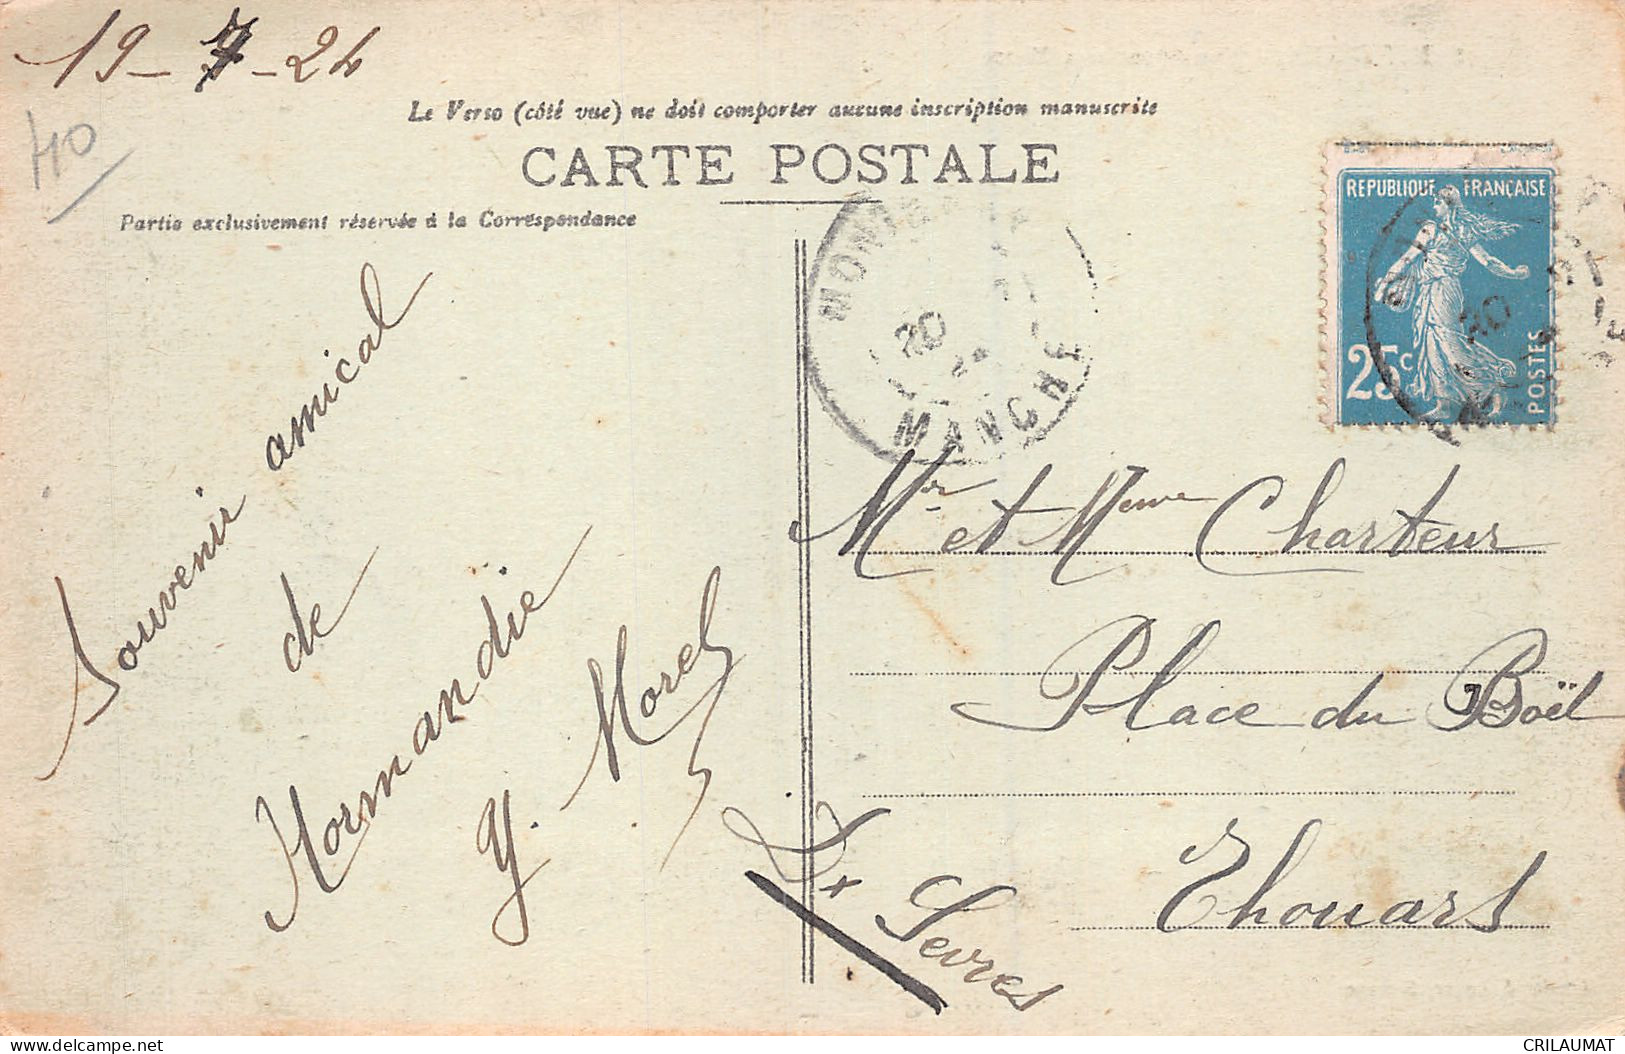 19-7-24
40
Le Verso (côté vue) ne doit comporter aucune inscription manuscrite
CARTE POSTALE
Partie exclusivement réservée à la Correspondance
REPUBLIQUE FRANÇAISE
25c
POSTES
20
MANCHE
20
Souvenir amical
de
Normandie
Y. Morel
Mr et Meme Charteur
Place du Boël
Thouars
Dx Sevres
delcampe.net
CRILAUMAT